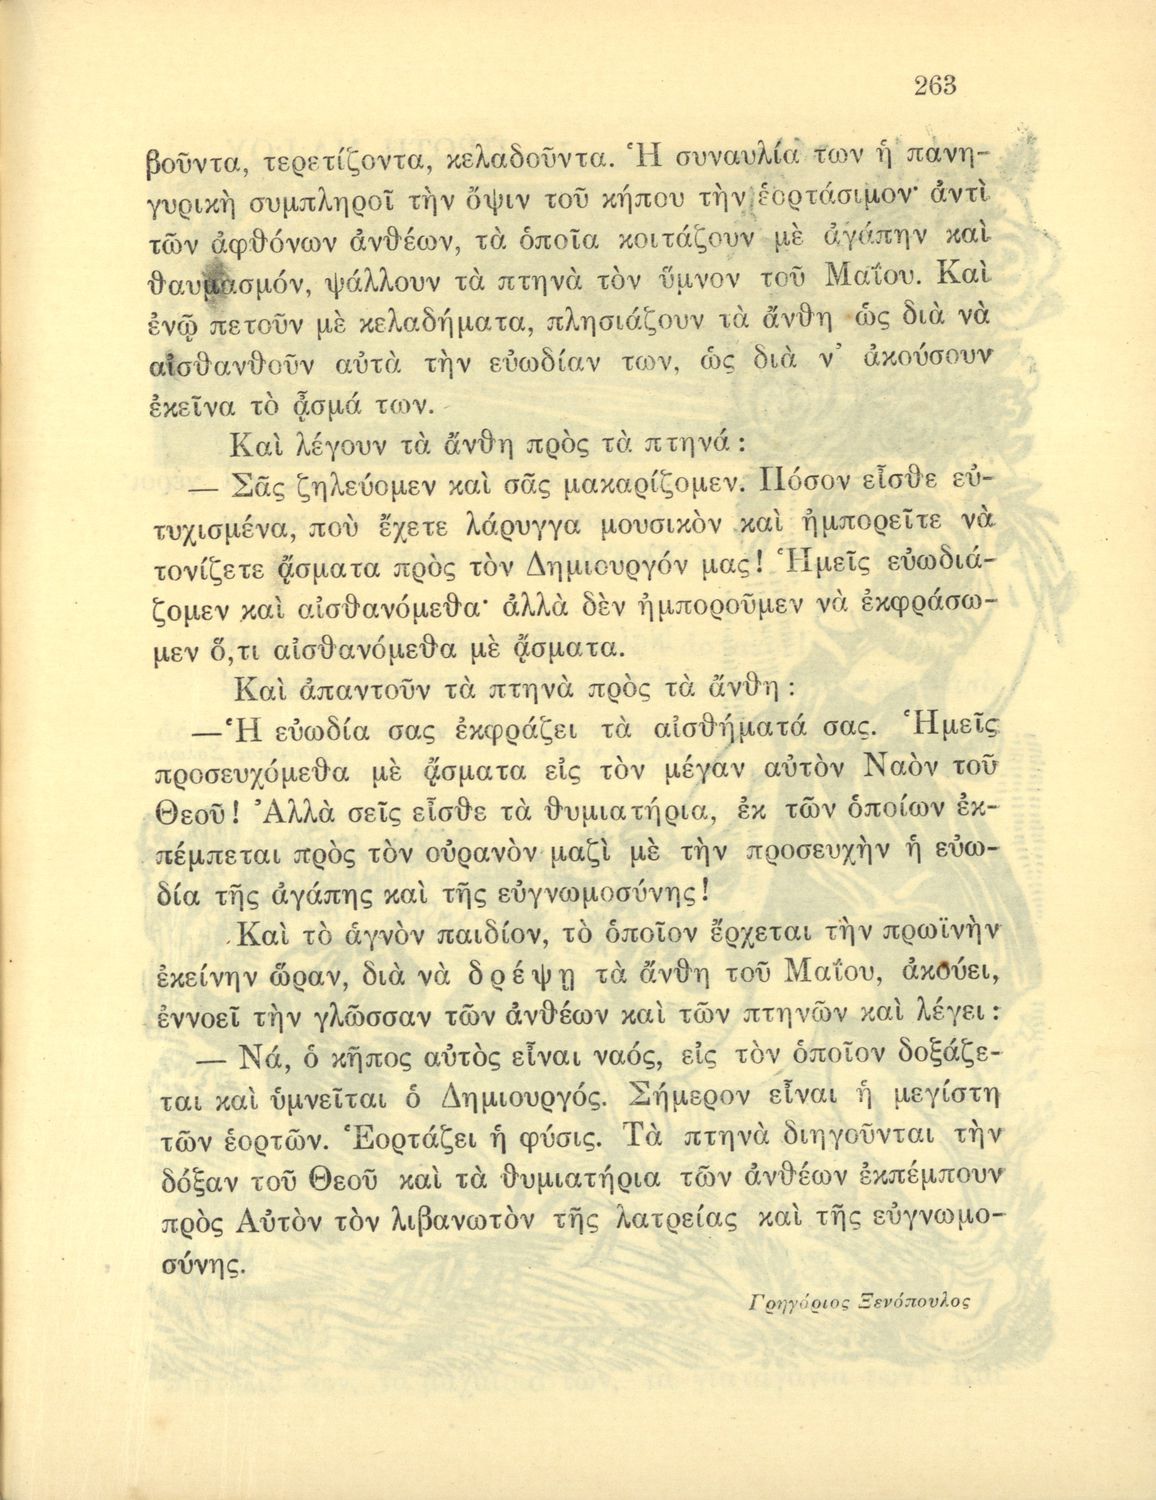 263
βοῦντα, τερετίζοντα, κελαδοῦντα. Ἡ συναυλία των ἡ πανη-
γυρικὴ συμπληροῖ τὴν ὄψιν τοῦ κήπου τὴν ἑορτάσιμον· ἀντὶ
τῶν ἀφθόνων ἀνθέων, τὰ ὁποῖα κοιτάζουν μὲ ἀγάπην καὶ
θαυμασμόν, ψάλλουν τὰ πτηνὰ τὸν ὕμνον τοῦ Μαΐου. Καὶ
ἐνῷ πετοῦν μὲ κελαδήματα, πλησιάζουν τὰ ἄνθη ὡς διὰ νὰ
αἰσθανθοῦν αὐτὰ τὴν εὐωδίαν των, ὡς διὰ ν' ἀκούσουν
ἐκεῖνα τὸ ᾆσμά των.
Καὶ λέγουν τὰ ἄνθη πρὸς τὰ πτηνά :
— Σᾶς ζηλεύομεν καὶ σᾶς μακαρίζομεν. Πόσον εἶσθε εὐ-
τυχισμένα, ποὺ ἔχετε λάρυγγα μουσικὸν καὶ ἠμπορεῖτε νὰ
τονίζετε ᾄσματα πρὸς τὸν Δημιουργόν μας! Ἡμεῖς εὐωδιά-
ζομεν καὶ αἰσθανόμεθα· ἀλλὰ δὲν ἠμποροῦμεν νὰ ἐκφράσω-
μεν ὅ,τι αἰσθανόμεθα μὲ ᾄσματα.
Καὶ ἀπαντοῦν τὰ πτηνὰ πρὸς τὰ ἄνθη :
—Ἡ εὐωδία σας ἐκφράζει τὰ αἰσθήματά σας. Ἡμεῖς
προσευχόμεθα μὲ ᾄσματα εἰς τὸν μέγαν αὐτὸν Ναὸν τοῦ
Θεοῦ! Ἀλλὰ σεῖς εἶσθε τὰ θυμιατήρια, ἐκ τῶν ὁποίων ἐκ-
πέμπεται πρὸς τὸν οὐρανὸν μαζὶ μὲ τὴν προσευχὴν ἡ εὐω-
δία τῆς ἀγάπης καὶ τῆς εὐγνωμοσύνης!
Καὶ τὸ ἁγνὸν παιδίον, τὸ ὁποῖον ἔρχεται τὴν πρωϊνὴν
ἐκείνην ὥραν, διὰ νὰ δρέψῃ τὰ ἄνθη τοῦ Μαΐου, ἀκούει,
ἐννοεῖ τὴν γλῶσσαν τῶν ἀνθέων καὶ τῶν πτηνῶν καὶ λέγει :
— Νά, ὁ κῆπος αὐτὸς εἶναι ναός, εἰς τὸν ὁποῖον δοξάζε-
ται καὶ ὑμνεῖται ὁ Δημιουργός. Σήμερον εἶναι ἡ μεγίστη
τῶν ἑορτῶν. Ἑορτάζει ἡ φύσις. Τὰ πτηνὰ διηγοῦνται τὴν
δόξαν τοῦ Θεοῦ καὶ τὰ θυμιατήρια τῶν ἀνθέων ἐκπέμπουν
πρὸς Αὐτὸν τὸν λιβανωτὸν τῆς λατρείας καὶ τῆς εὐγνωμο-
σύνης.
Γρηγόριος Ξενόπουλος